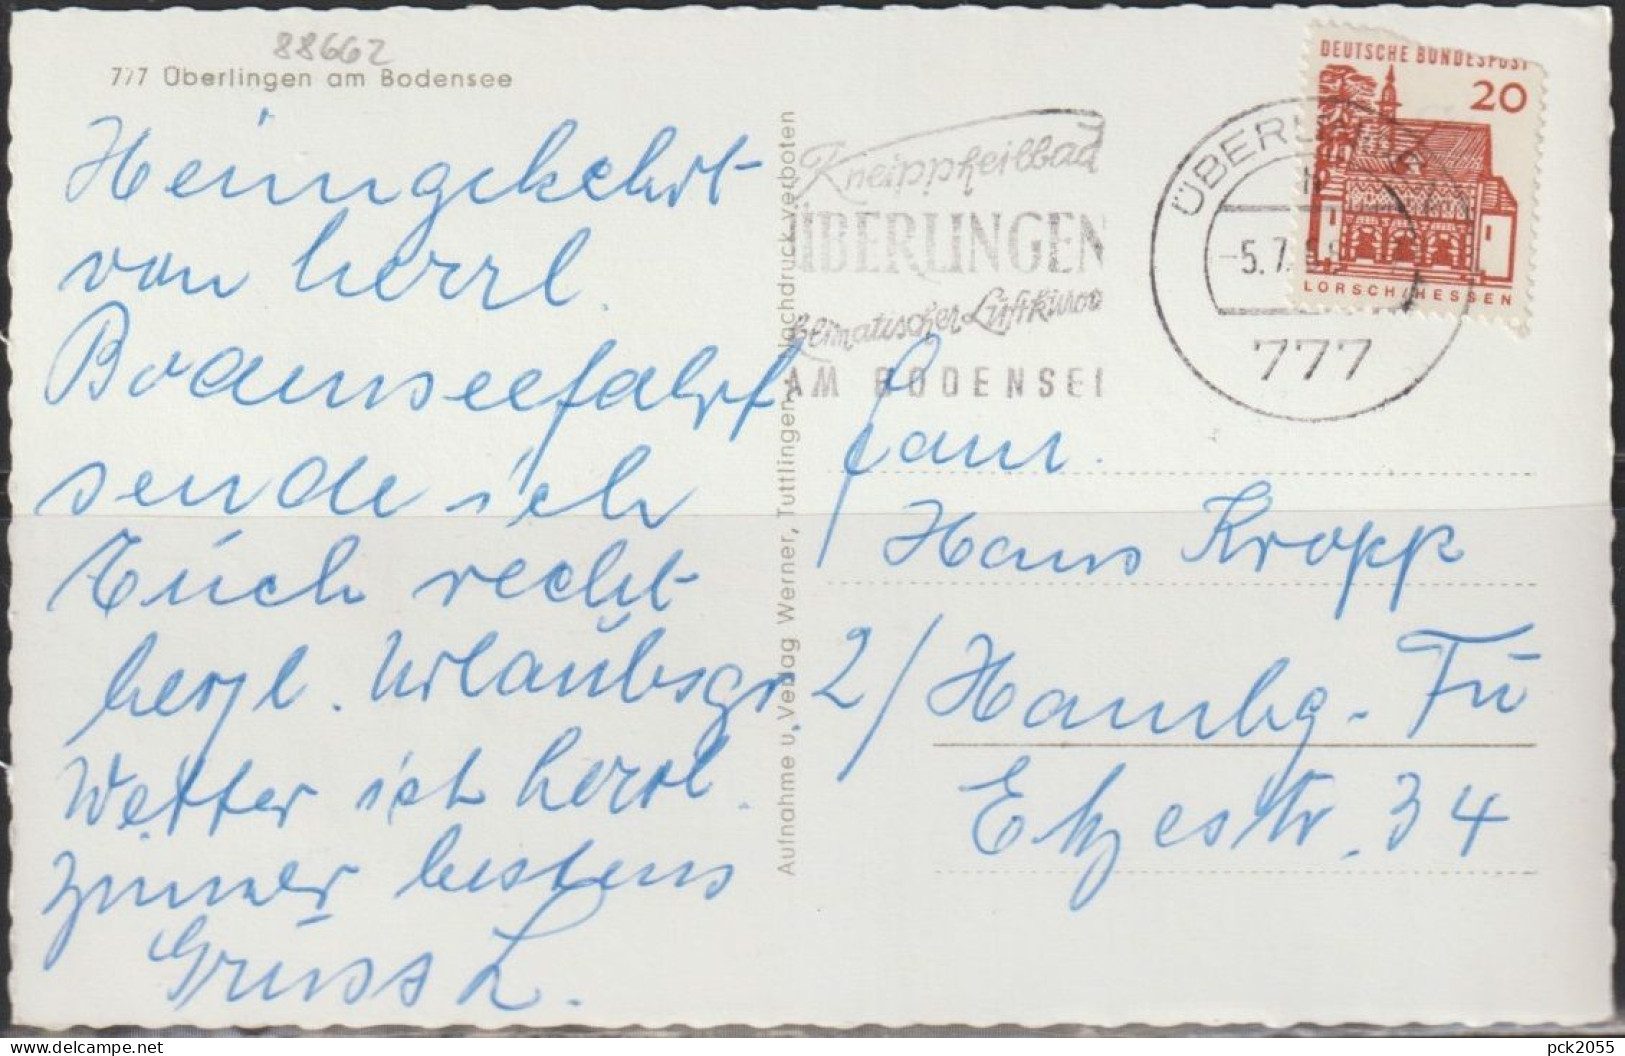 88662
777 Überlingen am Bodensee
Heimgekehrt
von herrl.
Bodenseefahrt
sende ich
Euch recht
herzl. Urlaubsgr.
Wetter ist herrl.
Zimmer bestens
Gruss L.
Aufnahme u. Verlag Werner, Tuttlingen Nachdruck verboten
Kneippheilbad
ÜBERLINGEN
klimatischer Luftkurort
AM BODENSEE
ÜBERLINGEN
-5.7.
777
DEUTSCHE BUNDESPOST
20
LORSCH/HESSEN
Fam.
Hans Kropp
2/Hambg.-Fu
Etzestr. 34
pck2055
delcampe.net